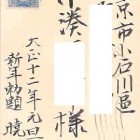 京市小石川區
小湊
様
大正十二年元旦
新年勅題 暁